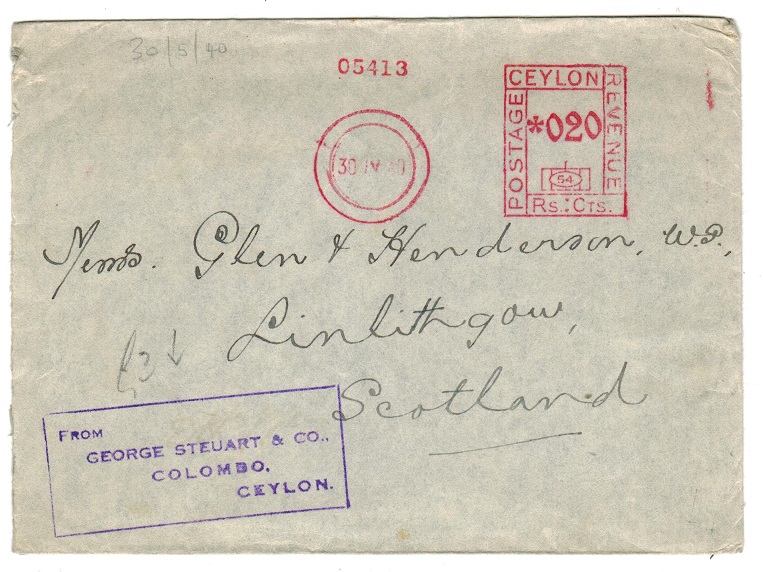 30/5/40
05413
CEYLON
POSTAGE
REVENUE
*020
54
Rs.:Cts.
30 IV 40
Messrs. Glen & Henderson, W.S.,
Linlithgow,
Scotland
FROM
GEORGE STEUART & CO.,
COLOMBO,
CEYLON.